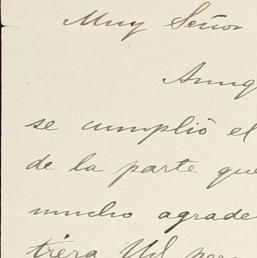 Muy Señor
Aunq
se cumplió el
de la parte que
mucho agrade
triera Ud. per